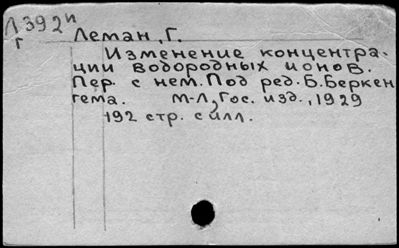 Л392и
г
Леман, Г.
Изменение концентра-
ции водородных ионов.
Пер. с нем. Под ред. Б. Беркен
гема. М-Л, Гос. изд., 1929
192 стр. с илл.